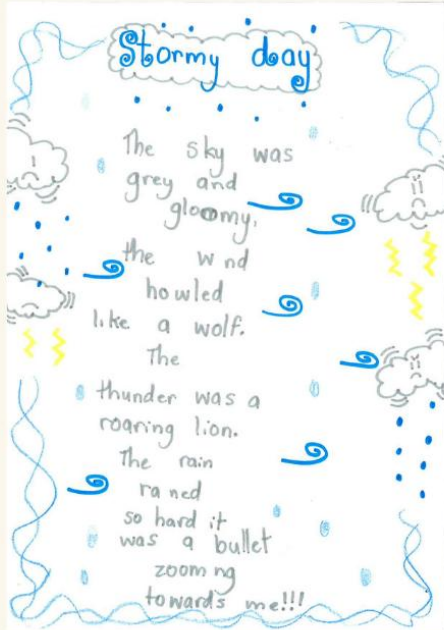 Stormy day
The sky was
grey and
gloomy,
the w nd
howled
like a wolf.
The
thunder was a
roaring lion.
The rain
ra ned
so hard it
was a bullet
zoom ng
towards me!!!